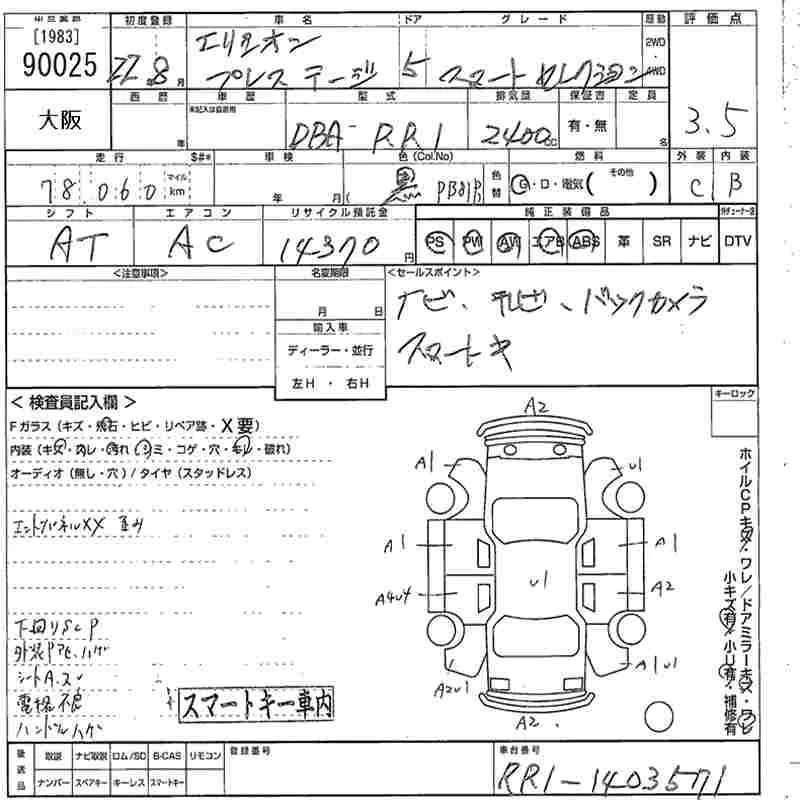 [1983]
90025
大阪
初度登録 車名 ドア グレード 原動 評価点
22年8月 エリシオン プレステージ 5 スマートセレクション 2WD・4WD
西暦 車歴 型式 排気量 保証書 定員
未記入は自家用
年 DBA-RR1 2400cc 有・無 名 3.5
走行 $#* 車検 色(Col.No) 燃料 外装 内装
78,060 マイル km 年 月( 黒 色替 G・D・電気( その他 ) C B
シフト エアコン リサイクル預託金 純正装備品
AT AC 14370円 PS PW AW エアB ABS 革 SR ナビ DTV
<注意事項> 名変期限 <セールスポイント>
月 日 ナビ、テレビ、バックカメラ
輸入車 スマートキー
ディーラー・並行
左H・右H
<検査員記入欄> キーロック
Fガラス(キズ・飛石・ヒビ・リペア跡・X要)
内装(キズ・ヨレ・汚れ・シミ・コゲ・穴・キレ・破れ)
オーディオ(無し・穴)/タイヤ(スタッドレス)
A2
A1 U1
A1 A1
A4U4 U1 A2
A2U1 A1U1
A2
ホイルCPキズ・ワレ/ドアミラーキズ・ワレ
小キズ有・小U有・補修有
下回りSCP
シートA.ス
ハンドルハゲ
スマートキー車内
後送品 取説 ナビ取説 ロム/SD B-CAS リモコン 登録番号 車台番号
ナンバー スペアキー キーレス スマートキー RR1-1403571